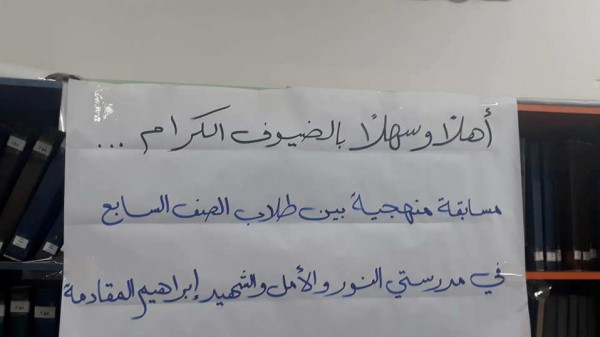 أهلاً وسهلاً بالضيوف الكرام ...
مسابقة منهجية بين طلاب الصف السابع
في مدرستي النور والأمل والشهيد إبراهيم المقادمة